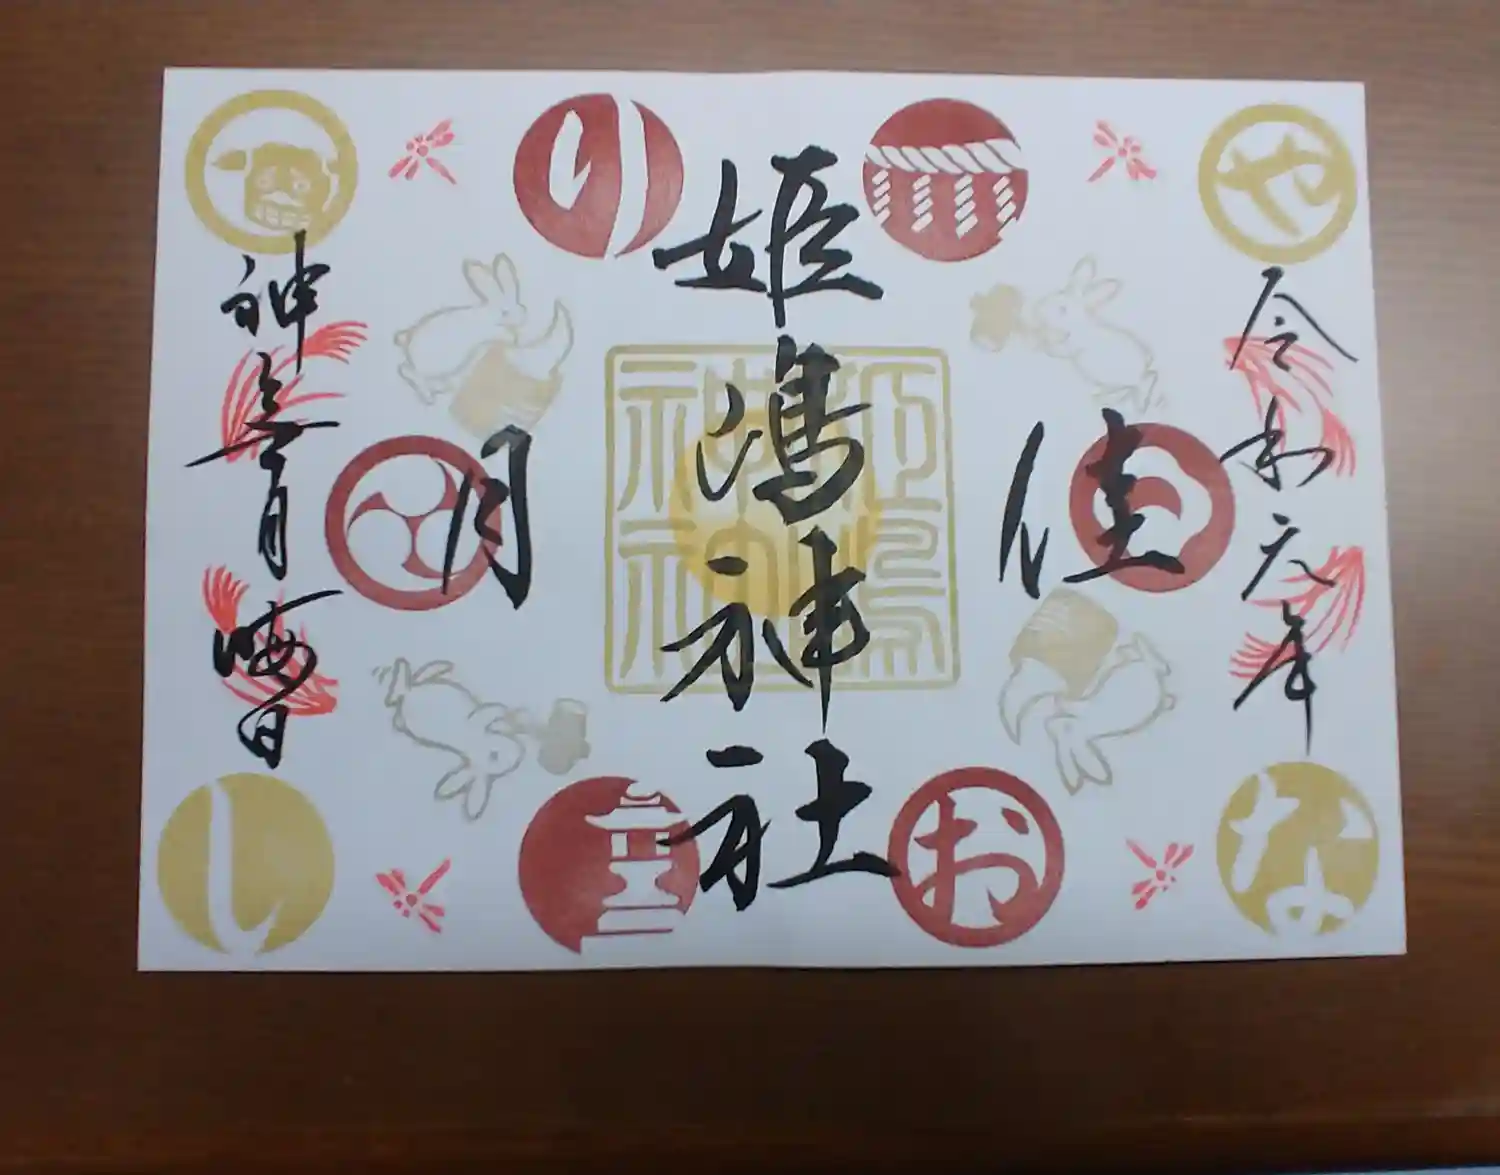 令和元年
佳
姫嶋神社
月
神無月晦日
や
り
な
お
し
姫嶋神社